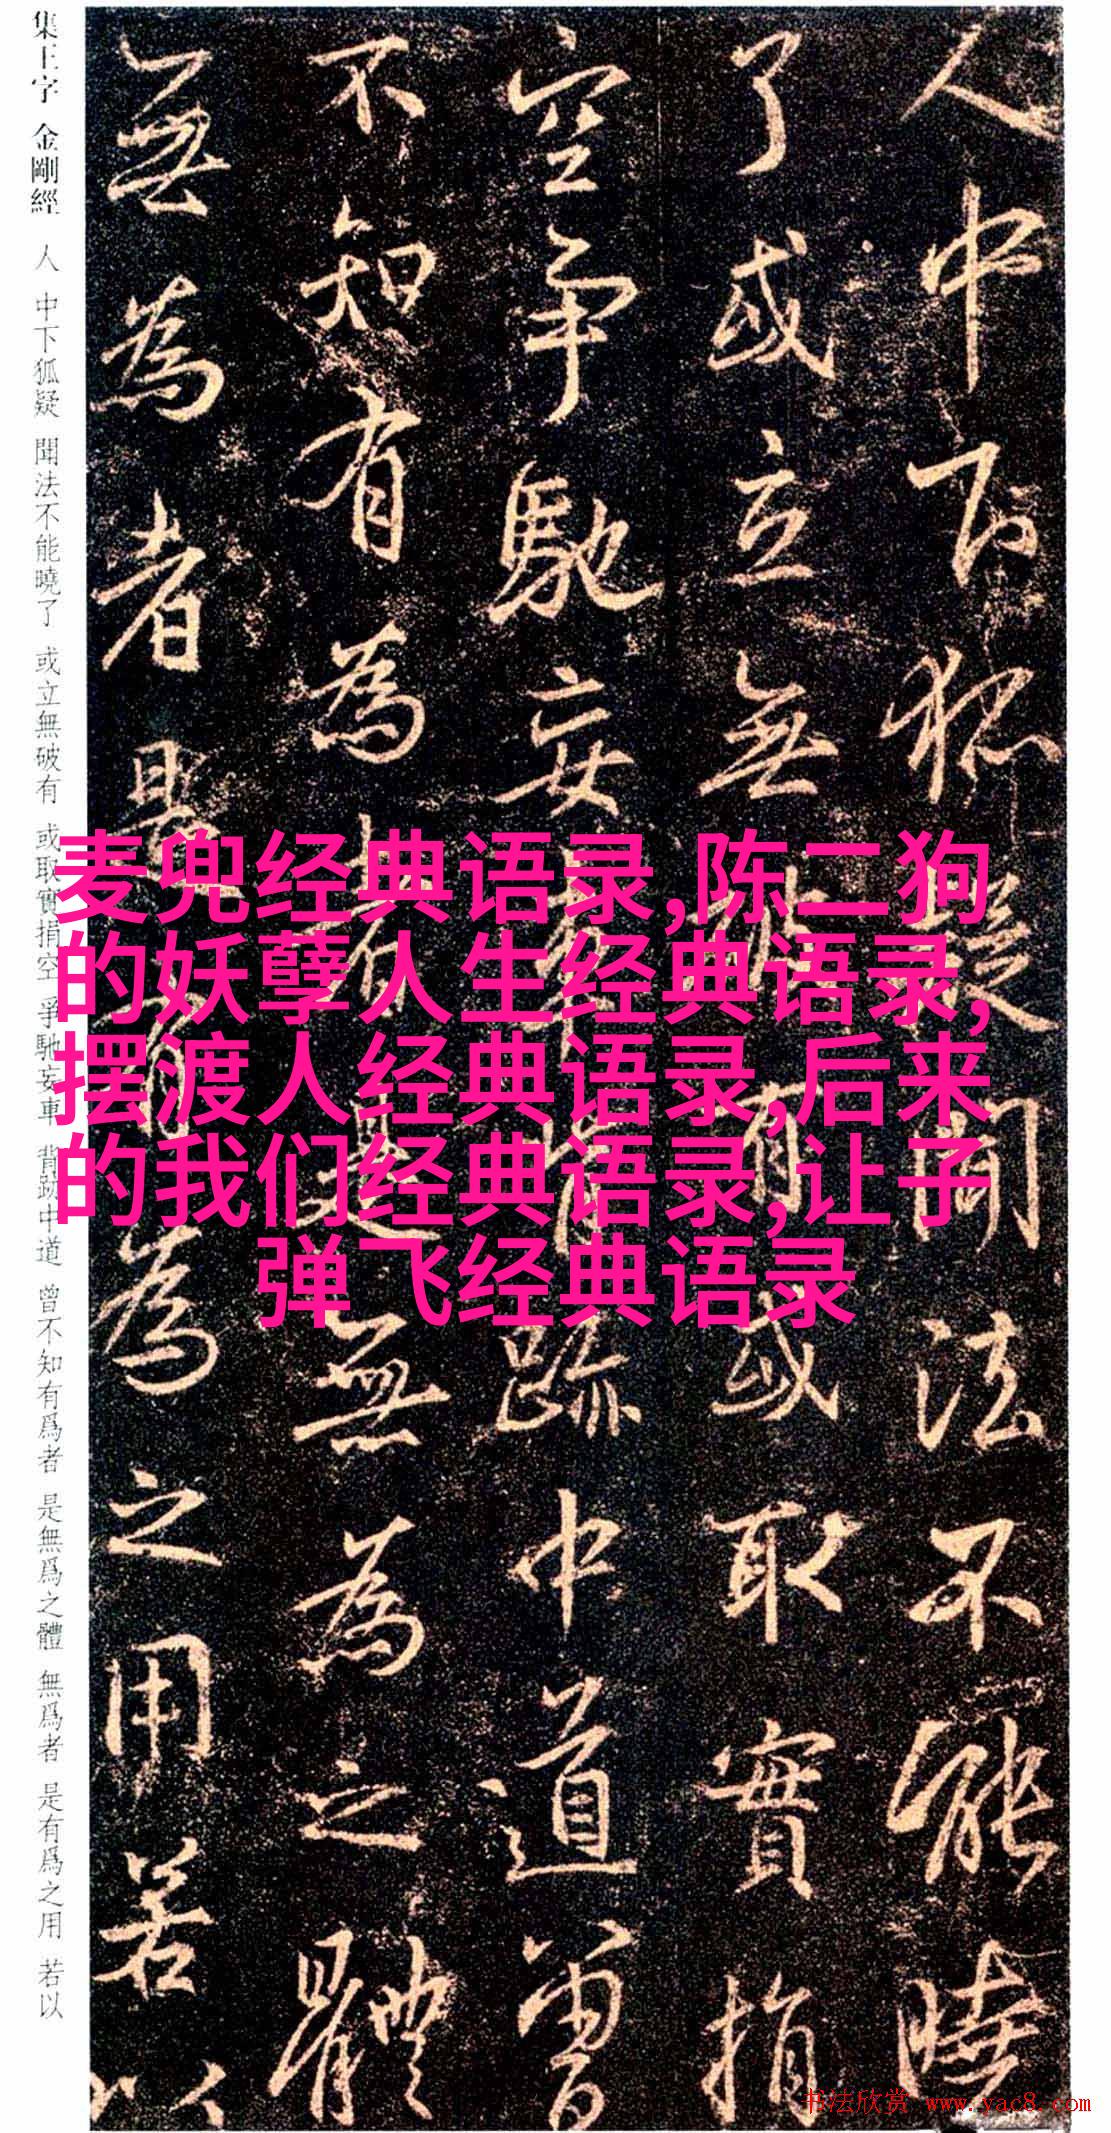 集王字 金剛經 人 中下狐疑 聞法不能曉了 或立無破有 或取實捐空 爭馳妄車 背跡中道 曾不知有爲者 是無爲之體 無爲者 是有爲之用 若以
人中下狐疑聞法不能曉
了或立無破有或取實捐
空爭馳妄車背跡中道曾
不知有為者是無為之體
無為者是有為之用若以
麦兜经典语录,陈二狗
的妖孽人生经典语录,
摆渡人经典语录,后来
的我们经典语录,让子
弹飞经典语录
书法欣赏 www.yac8.com